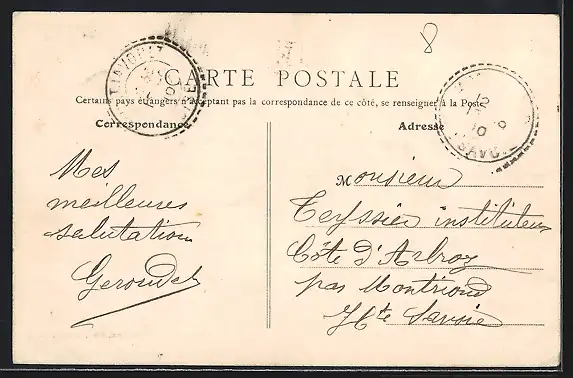 8
CARTE POSTALE
Certains pays étrangers n'acceptant pas la correspondance de ce côté, se renseigner à la Poste
Correspondance
Adresse
Mes
meilleures
salutation
Geroudet
Monsieur
Teyssier instituteur
Côte d'Arbroz
par Montriond
Hte Savoie